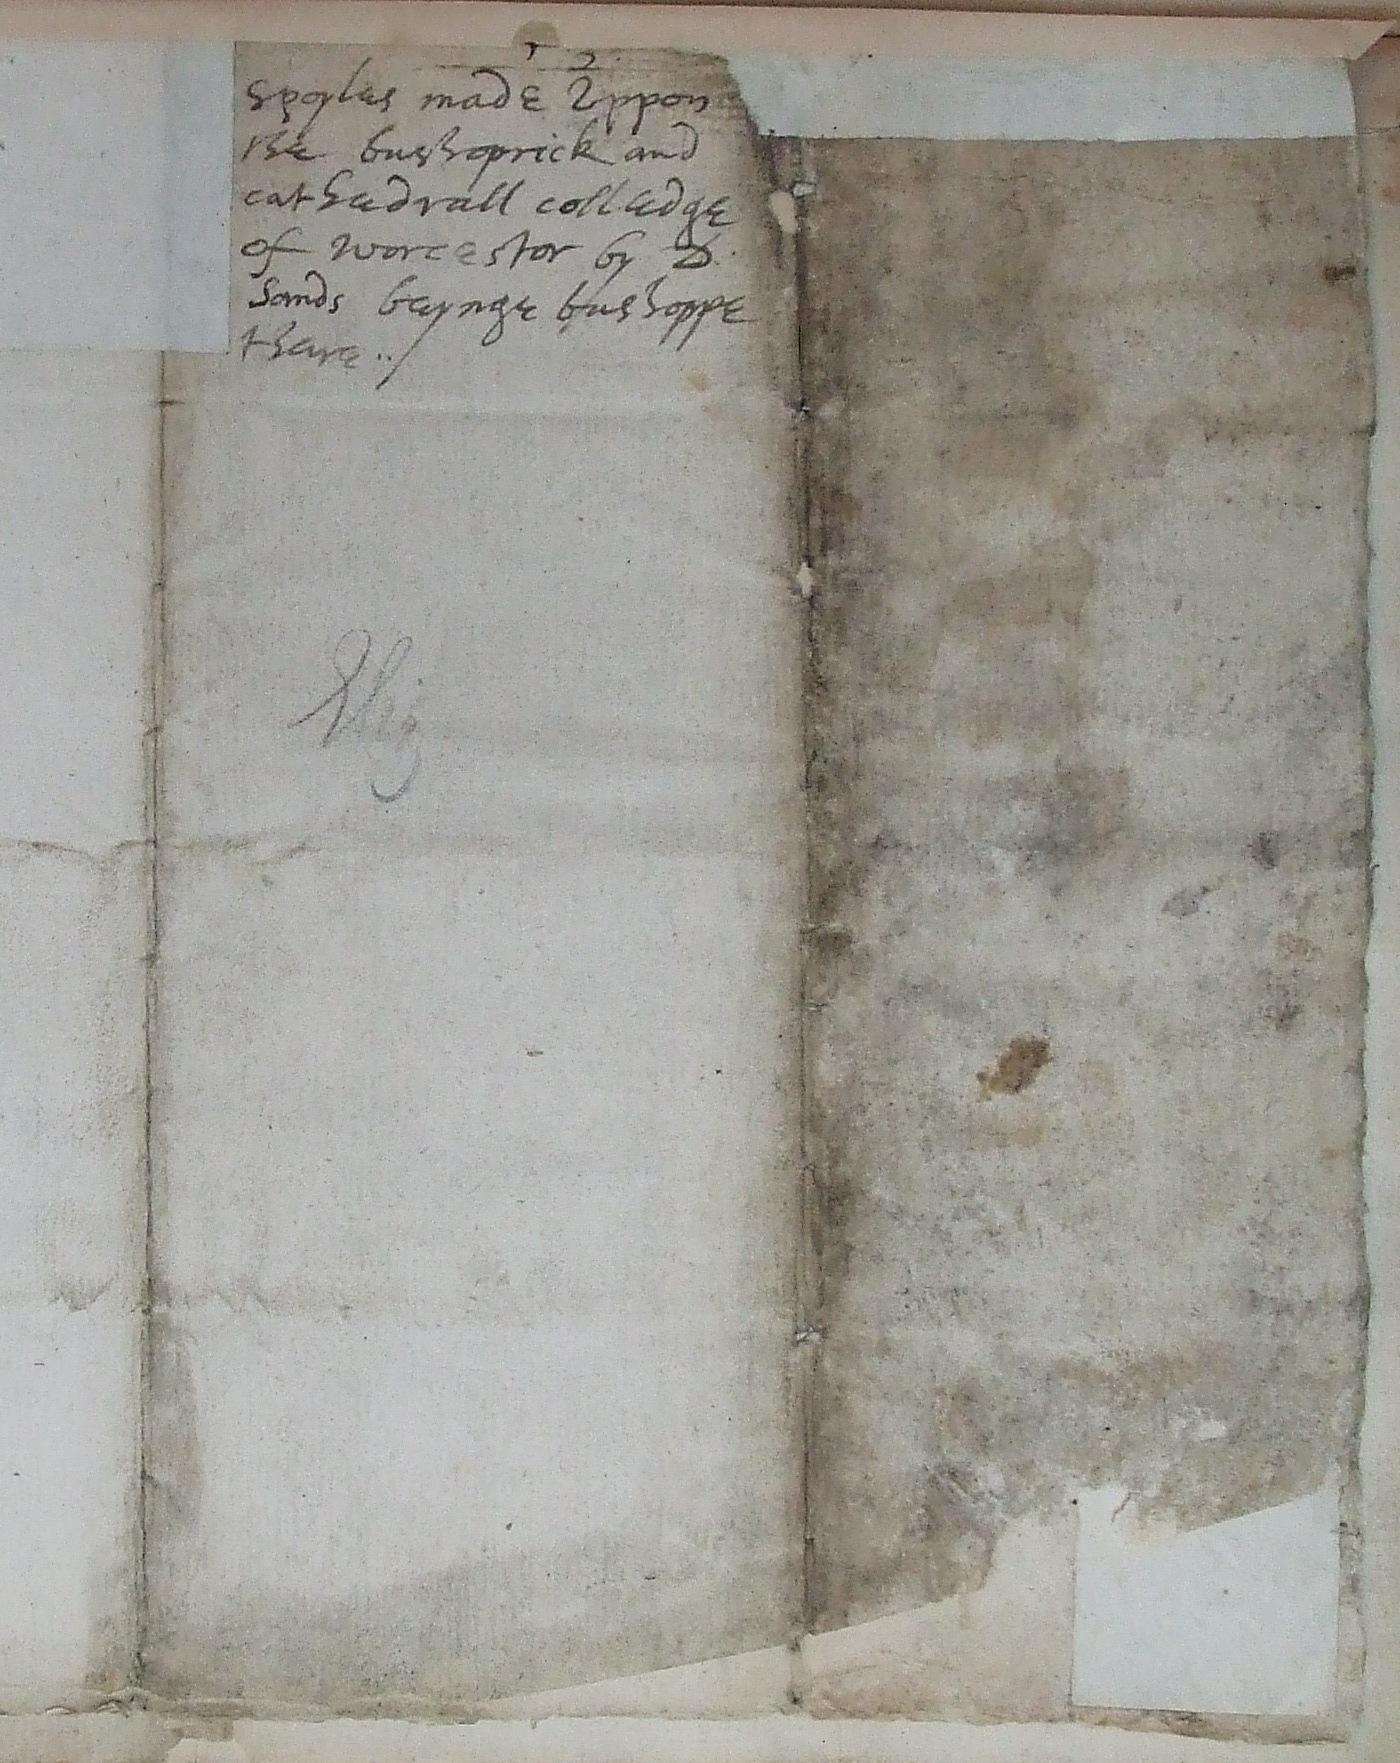 spoyles made vppon
the busshoprick and
cathedrall colledge
of worcestor by D.
Sands beynge busshoppe
there ../
Eliz